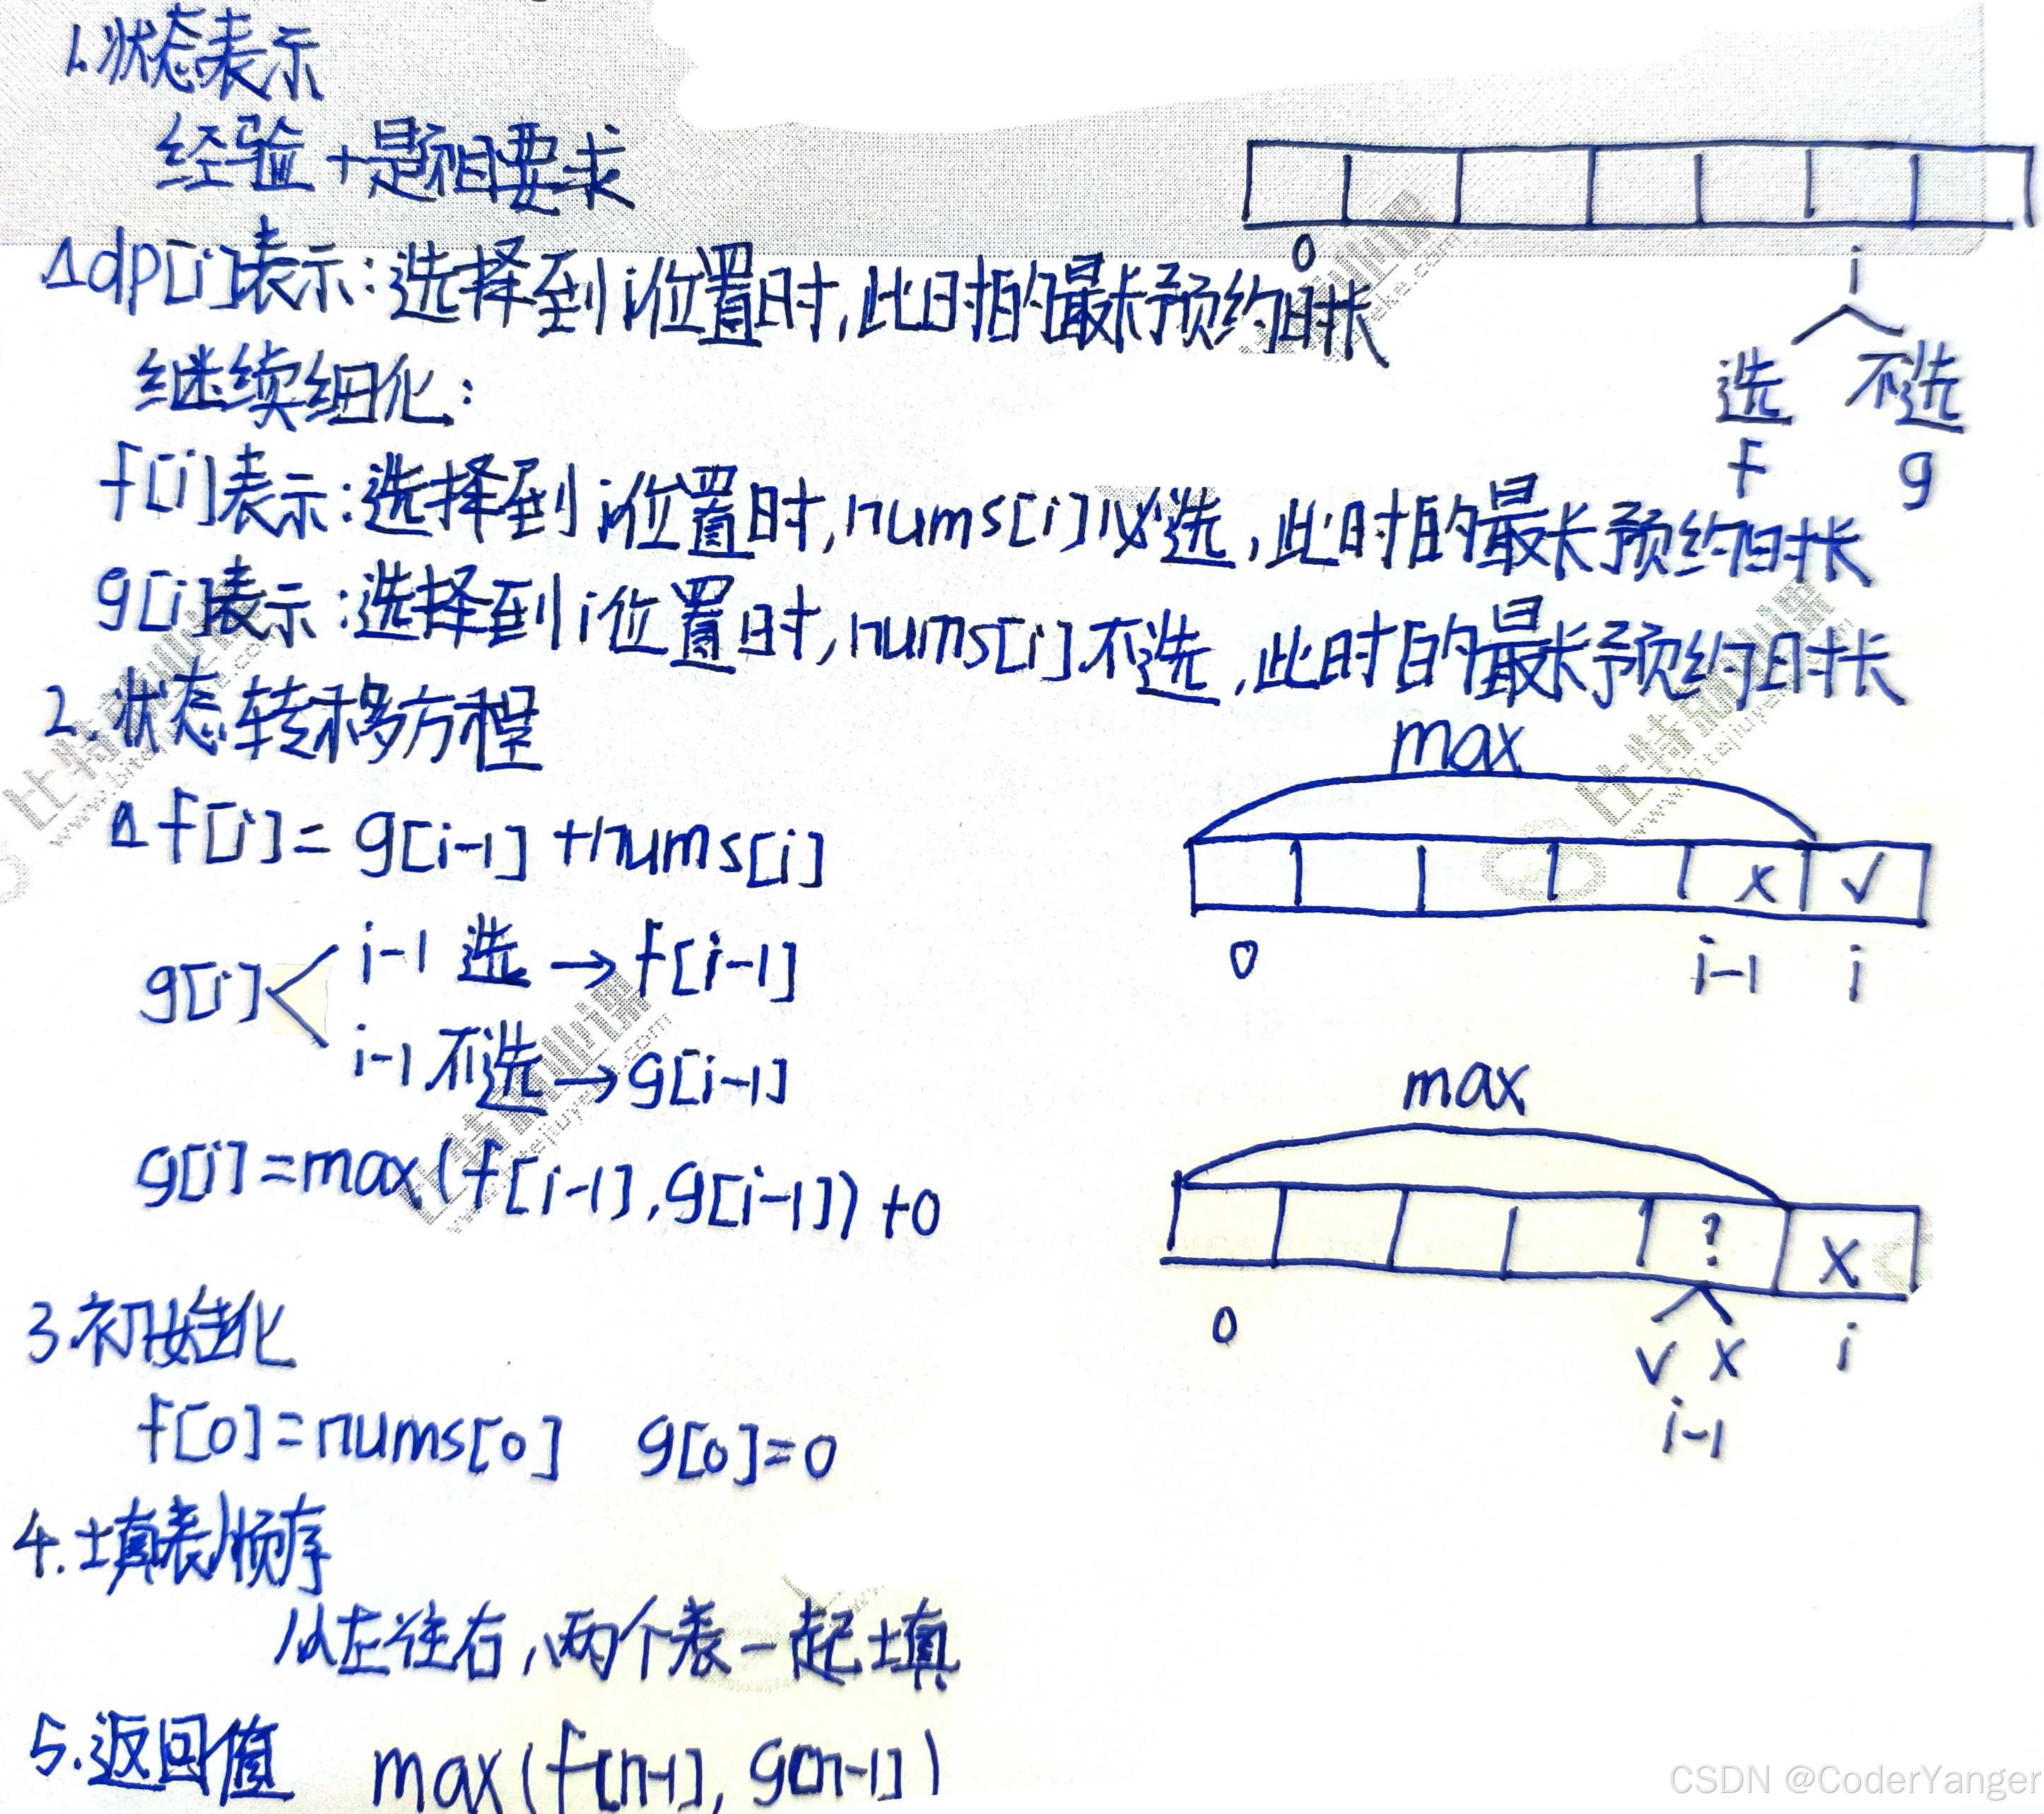 1.状态表示
经验+题目要求
0
i
选 不选
f g
△dp[i]表示:选择到i位置时,此时的最长预约时长
继续细化:
f[i]表示:选择到i位置时,nums[i]必选,此时的最长预约时长
g[i]表示:选择到i位置时,nums[i]不选,此时的最长预约时长
2.状态转移方程
△f[i]=g[i-1]+nums[i]
max
x √
0 i-1 i
g[i]
i-1 选→f[i-1]
i-1 不选→g[i-1]
g[i]=max(f[i-1],g[i-1])+0
max
? x
0 √ x i
i-1
3.初始化
f[0]=nums[0] g[0]=0
4.填表顺序
从左往右,两个表一起填
5.返回值 max(f[n-1],g[n-1])
比特就业课
CSDN @CoderYanger